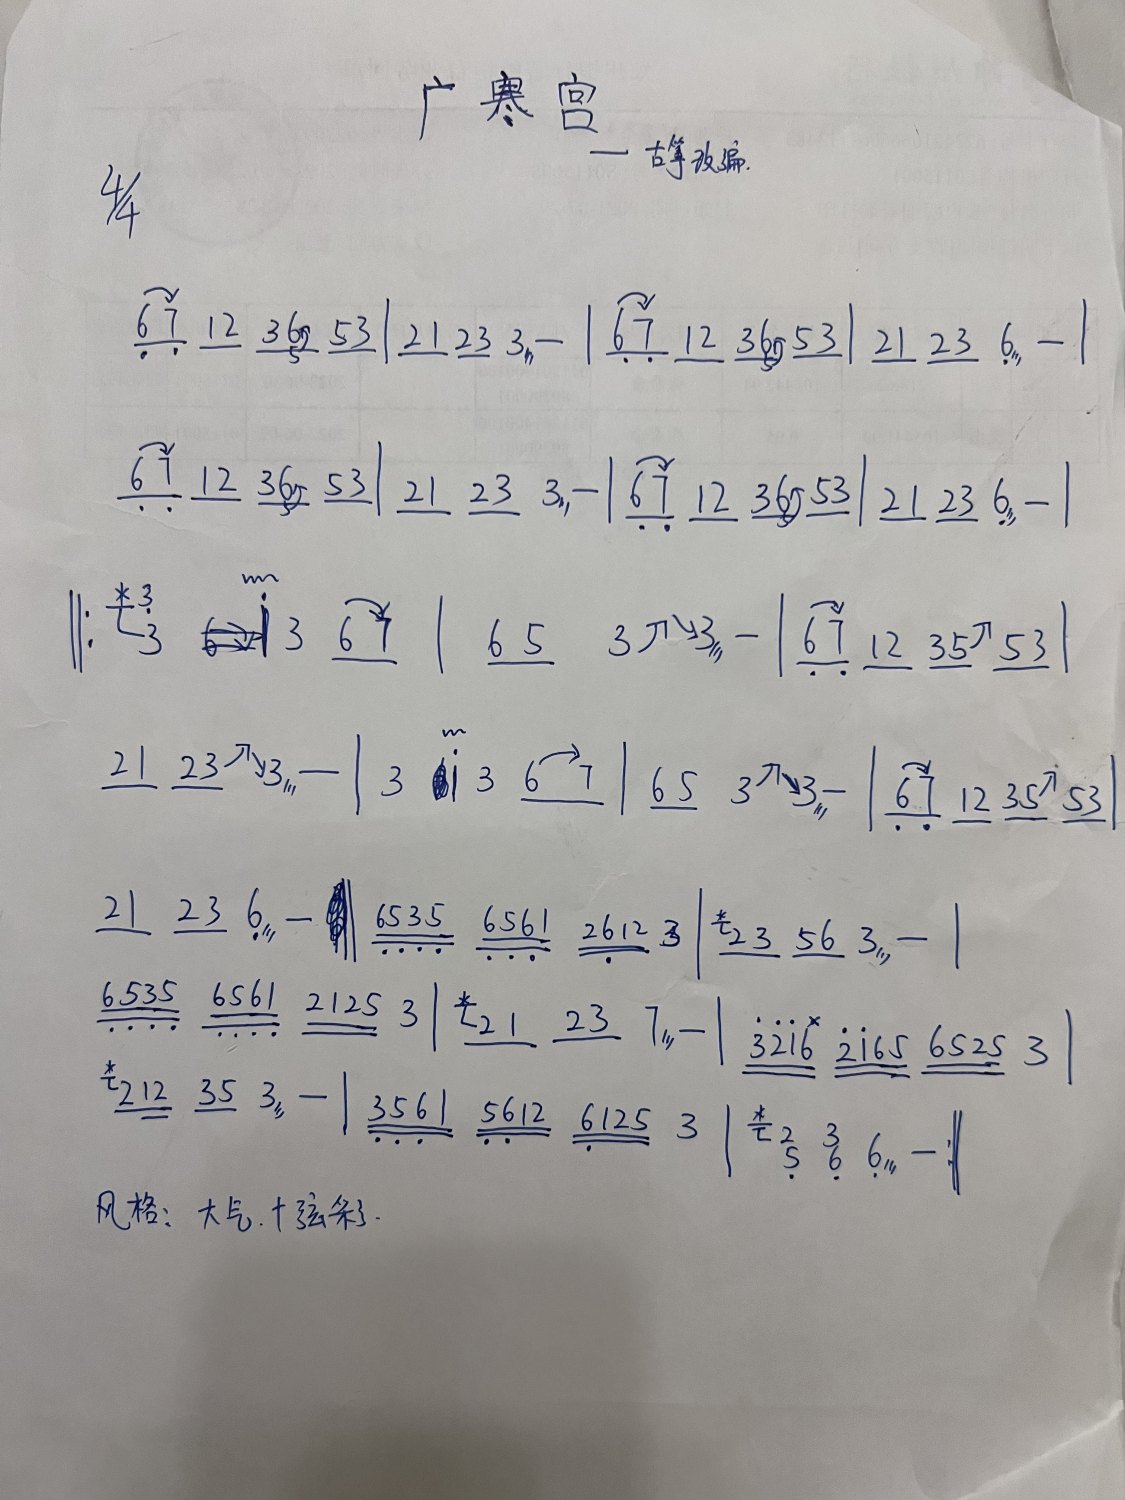 广寒宫
— 古筝改编.
4/4
67 12 365 53 | 21 23 3 - | 67 12 365 53 | 21 23 6 - |
67 12 365 53 | 21 23 3 - | 67 12 365 53 | 21 23 6 - |
‖: 3 3 i 3 67 | 65 3 3 - | 67 12 35 53 |
21 23 3 - | 3 i 3 67 | 65 3 3 - | 67 12 35 53 |
21 23 6 - ‖ 6535 6561 2612 3 | 23 56 3 - |
6535 6561 2125 3 | 21 23 7 - | 3216 2165 6525 3 |
212 35 3 - | 3561 5612 6125 3 | 2 5 3 6 6 - :‖
风格: 大气.